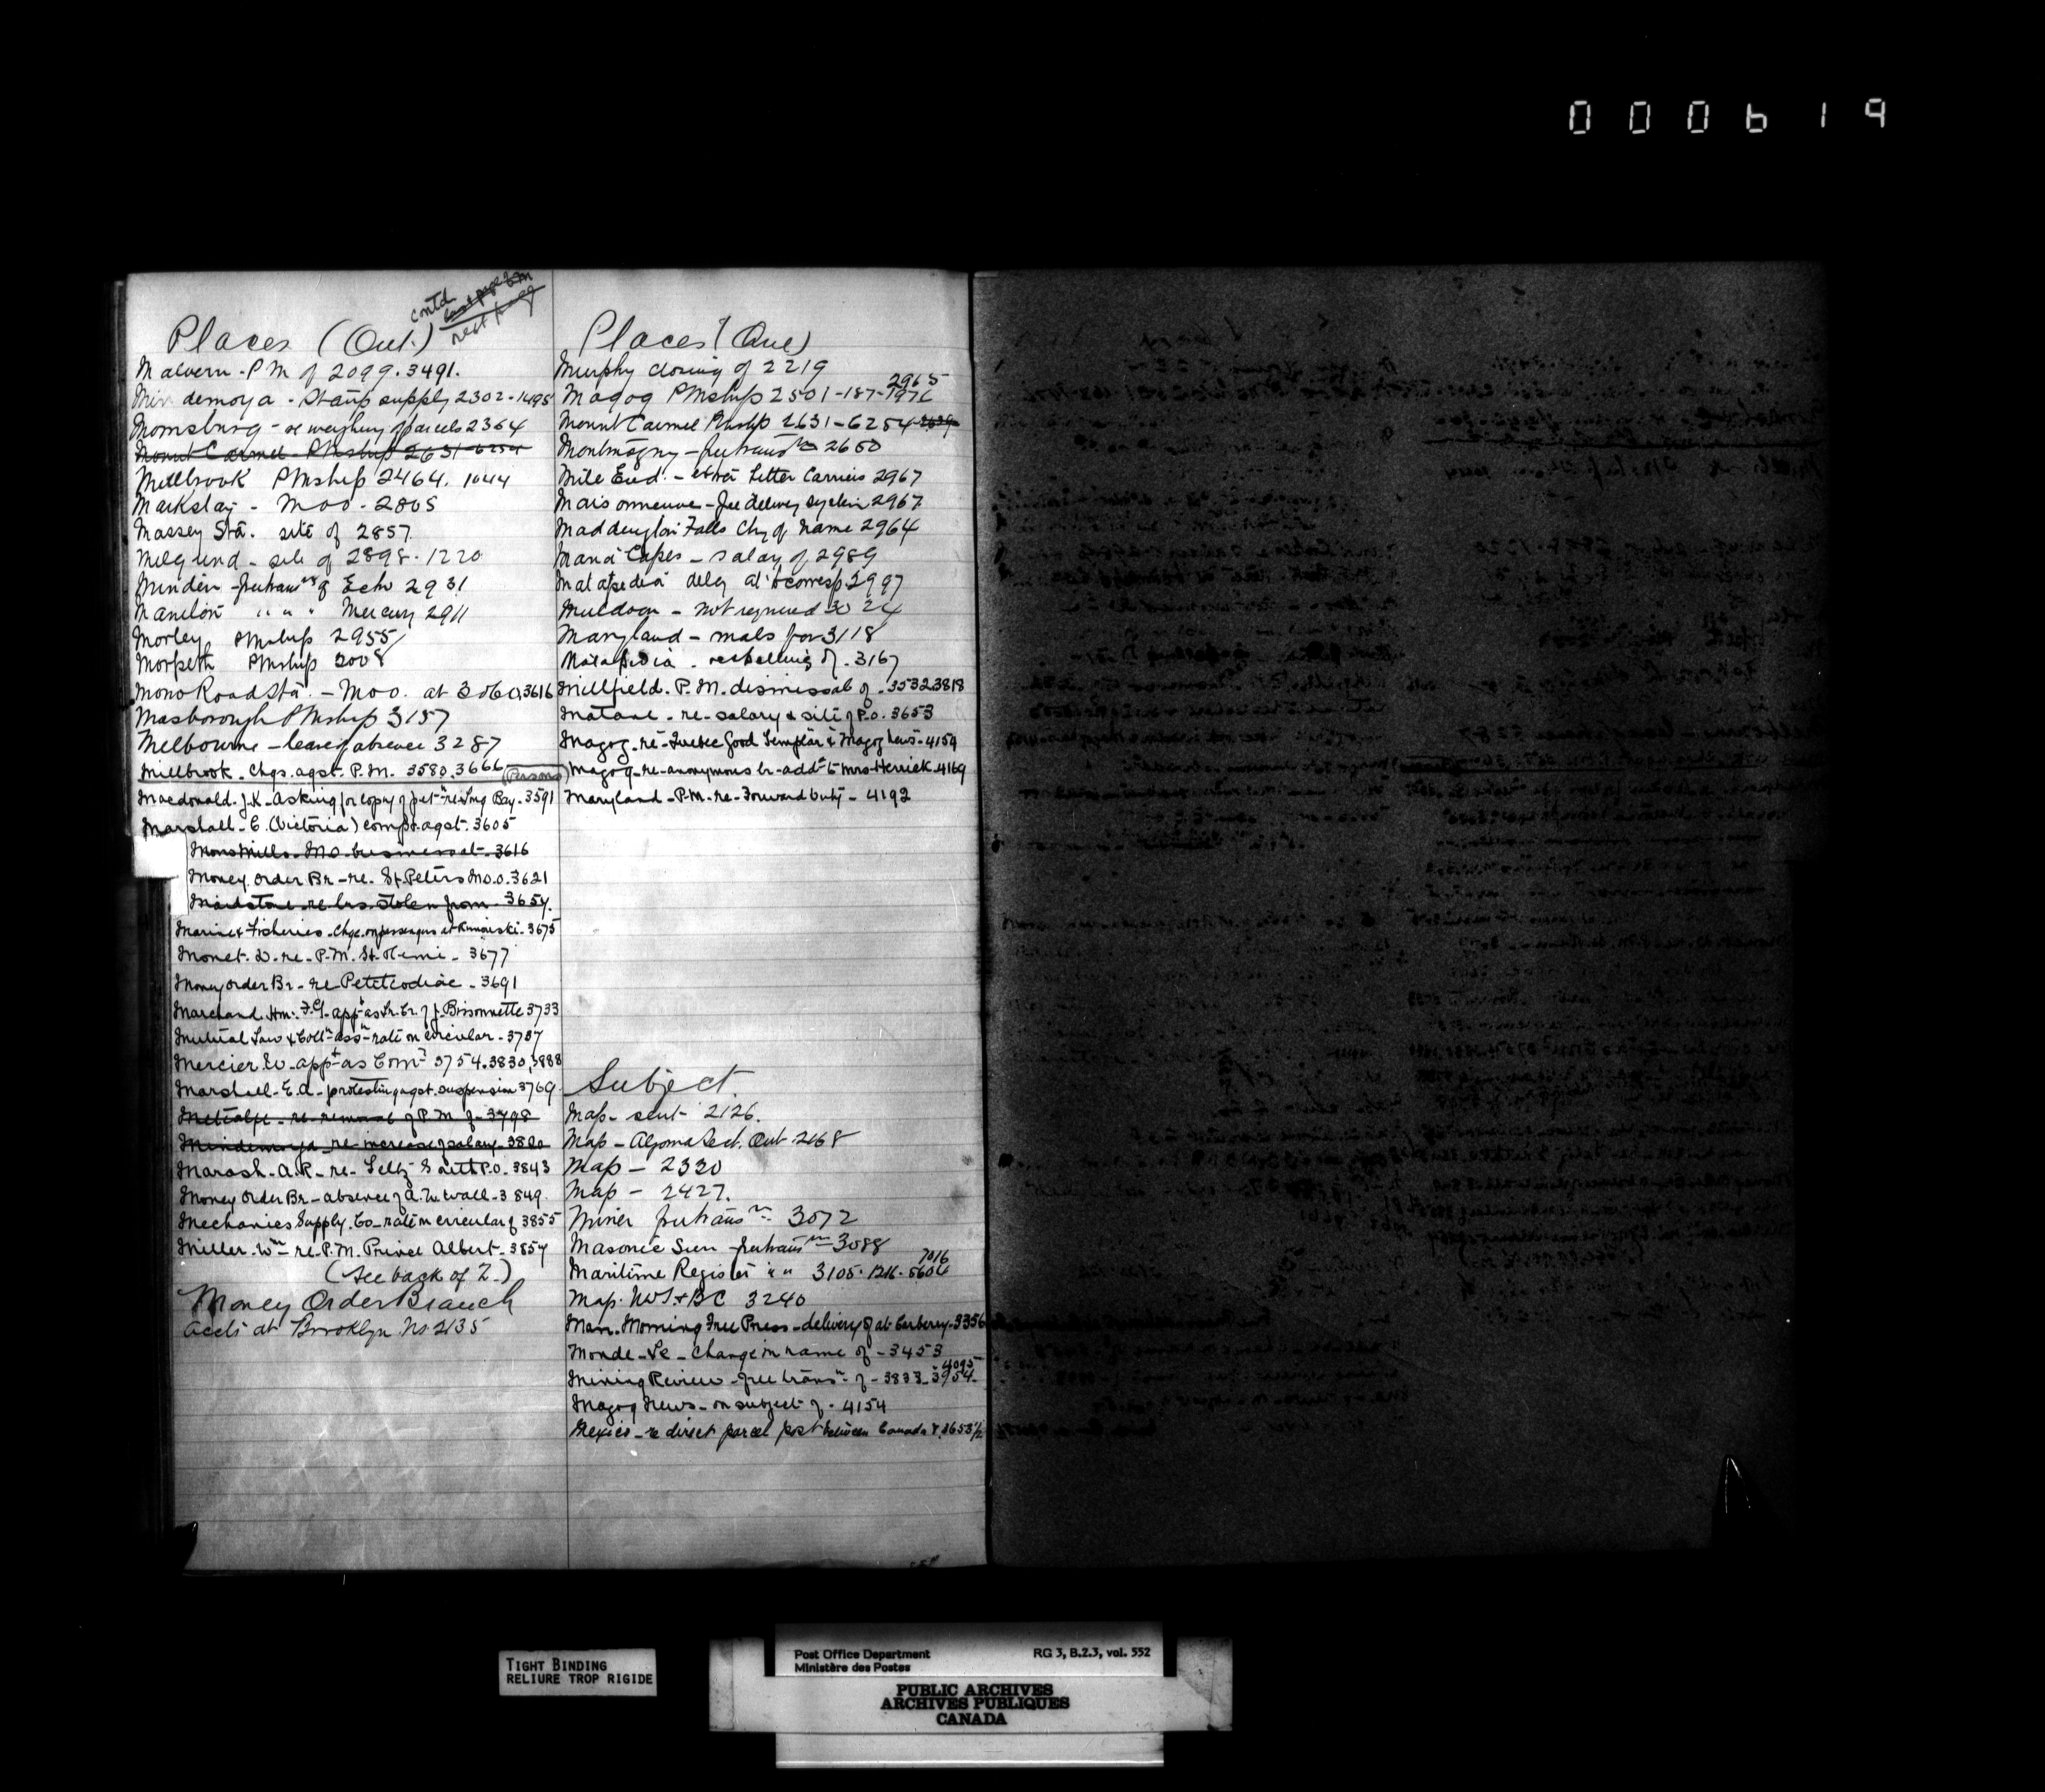 000619
contd
next page
Places (Ont.)
Malvern - P M of 2099. 3491.
Mindemoya - Stamp supply 2302 - 1495
Mornsburg - re weighing of parcels 2364
Mount Carmel - PMship 2631-6254
Millbrook PMship 2464. 1044
Markstay - Moo - 2805
Massey Sta. site of 2857
Melgund - site of 2898 - 1220
Minden - freetransn of Echo 2931
Manilon " " " Mercury 2911
Morley PMship 2955
Morpeth PMship 3008
Mono Road Sta. - Moo. at 3060, 3616
Masborough PMship 3157
Melbourne - leave of absence 3287
Millbrook. Chgs. agst. P.M. 3580. 3666
(Persons)
Macdonald. J.K. asking for copy of petn re Long Bay. 3591
Marshall - E. (Victoria) complt. agst. 3605
Mono Mills. M.O. business at. 3616
Money Order Br - re. St. Peters M.O.O. 3621
Maidstone re lrs. stolen from. 3654.
Marine & Fisheries - Chge. on passengers at Rimouski. 3675
Monet. D. re - P.M. St. Remi - 3677
Money Order Br - re Petitcodiac - 3691
Marchand. Hon. F.G. appt as Lr. Cr. of J. Bissonnette 3733
Mutual Law & Colln assn rate on circular - 3737
Mercier. W. appt as Comr 3754. 3830, 3888
Marshall - E.A. - protesting agst. suspension 3769
Metcalfe - re removal of P.M. of - 3798
Mindemoya - re increase of salary - 3800
Marash. A.R. re - P.O. 3843
Money Order Br - absence of A. W. Wall - 3849.
Mechanics Supply Co - rate on circular of 3855
Miller. Wm re - P.M. Prince Albert - 3857
(See back of Z.)
Money Order Branch
accts at Brooklyn No. 2135
Places (Que)
Murphy closing of 2219
Magog PMship 2501 - 187 - 1976 2965
Mount Carmel PMship 2631 - 6254
Montmagny - freetransn 2650
Mile End - extra Letter Carriers 2967
Maisonneuve - free delivery system 2967
Maddington Falls Chg of name 2964
Maria Capes - salary of 2989
Matapedia delay at to corresp 2997
Muldoon - not required 3024
Maryland - mails for 3118
Matapedia. respelling of. 3167
Millfield. P.M. dismissal of. 3532, 3818
Matane - re - salary & site of P.O. 3653
Magog - re - Quebec Good Templar & Magog News - 4154
Magog - re - anonymous lr - addd to Mrs Herrick. 4169
Maryland - P.M. re - Forward duty - 4192
Subject.
Map - sent 2126.
Map - Algoma Sect. Ont. 2168
Map - 2330
Map - 2427.
Miner freetransn - 3072
Masonic Sun - freetransn - 3088
Maritime Register " " 3105 - 1216 - 5606 7016
Map. NWT. & BC 3240
Man. Morning Free Press - delivery of at Carberry - 3356
Monde - Le - change in name of - 3453
Mining Review - free transn of - 3833 - 3954 - 4095
Magog News - on subject of - 4154
Mexico - re direct parcel post between Canada &. 3653½
TIGHT BINDING
RELIURE TROP RIGIDE
Post Office Department RG 3, B.2.3, vol. 552
Ministère des Postes
PUBLIC ARCHIVES
ARCHIVES PUBLIQUES
CANADA